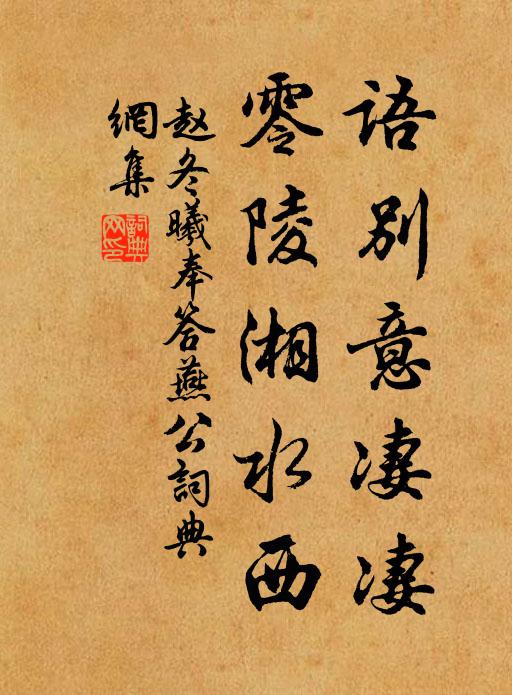 语别意凄凄
零陵湘水西
赵冬曦奉答燕公詞典
網集
詞典
网印